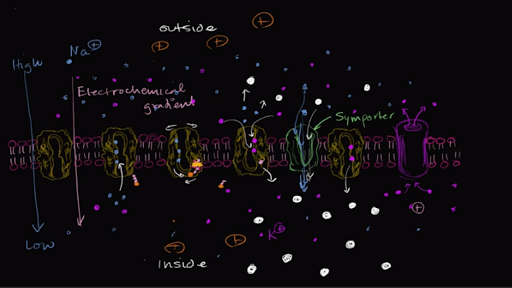 outside
High
Na+
Electrochemical
gradient
Symporter
Low
K+
inside